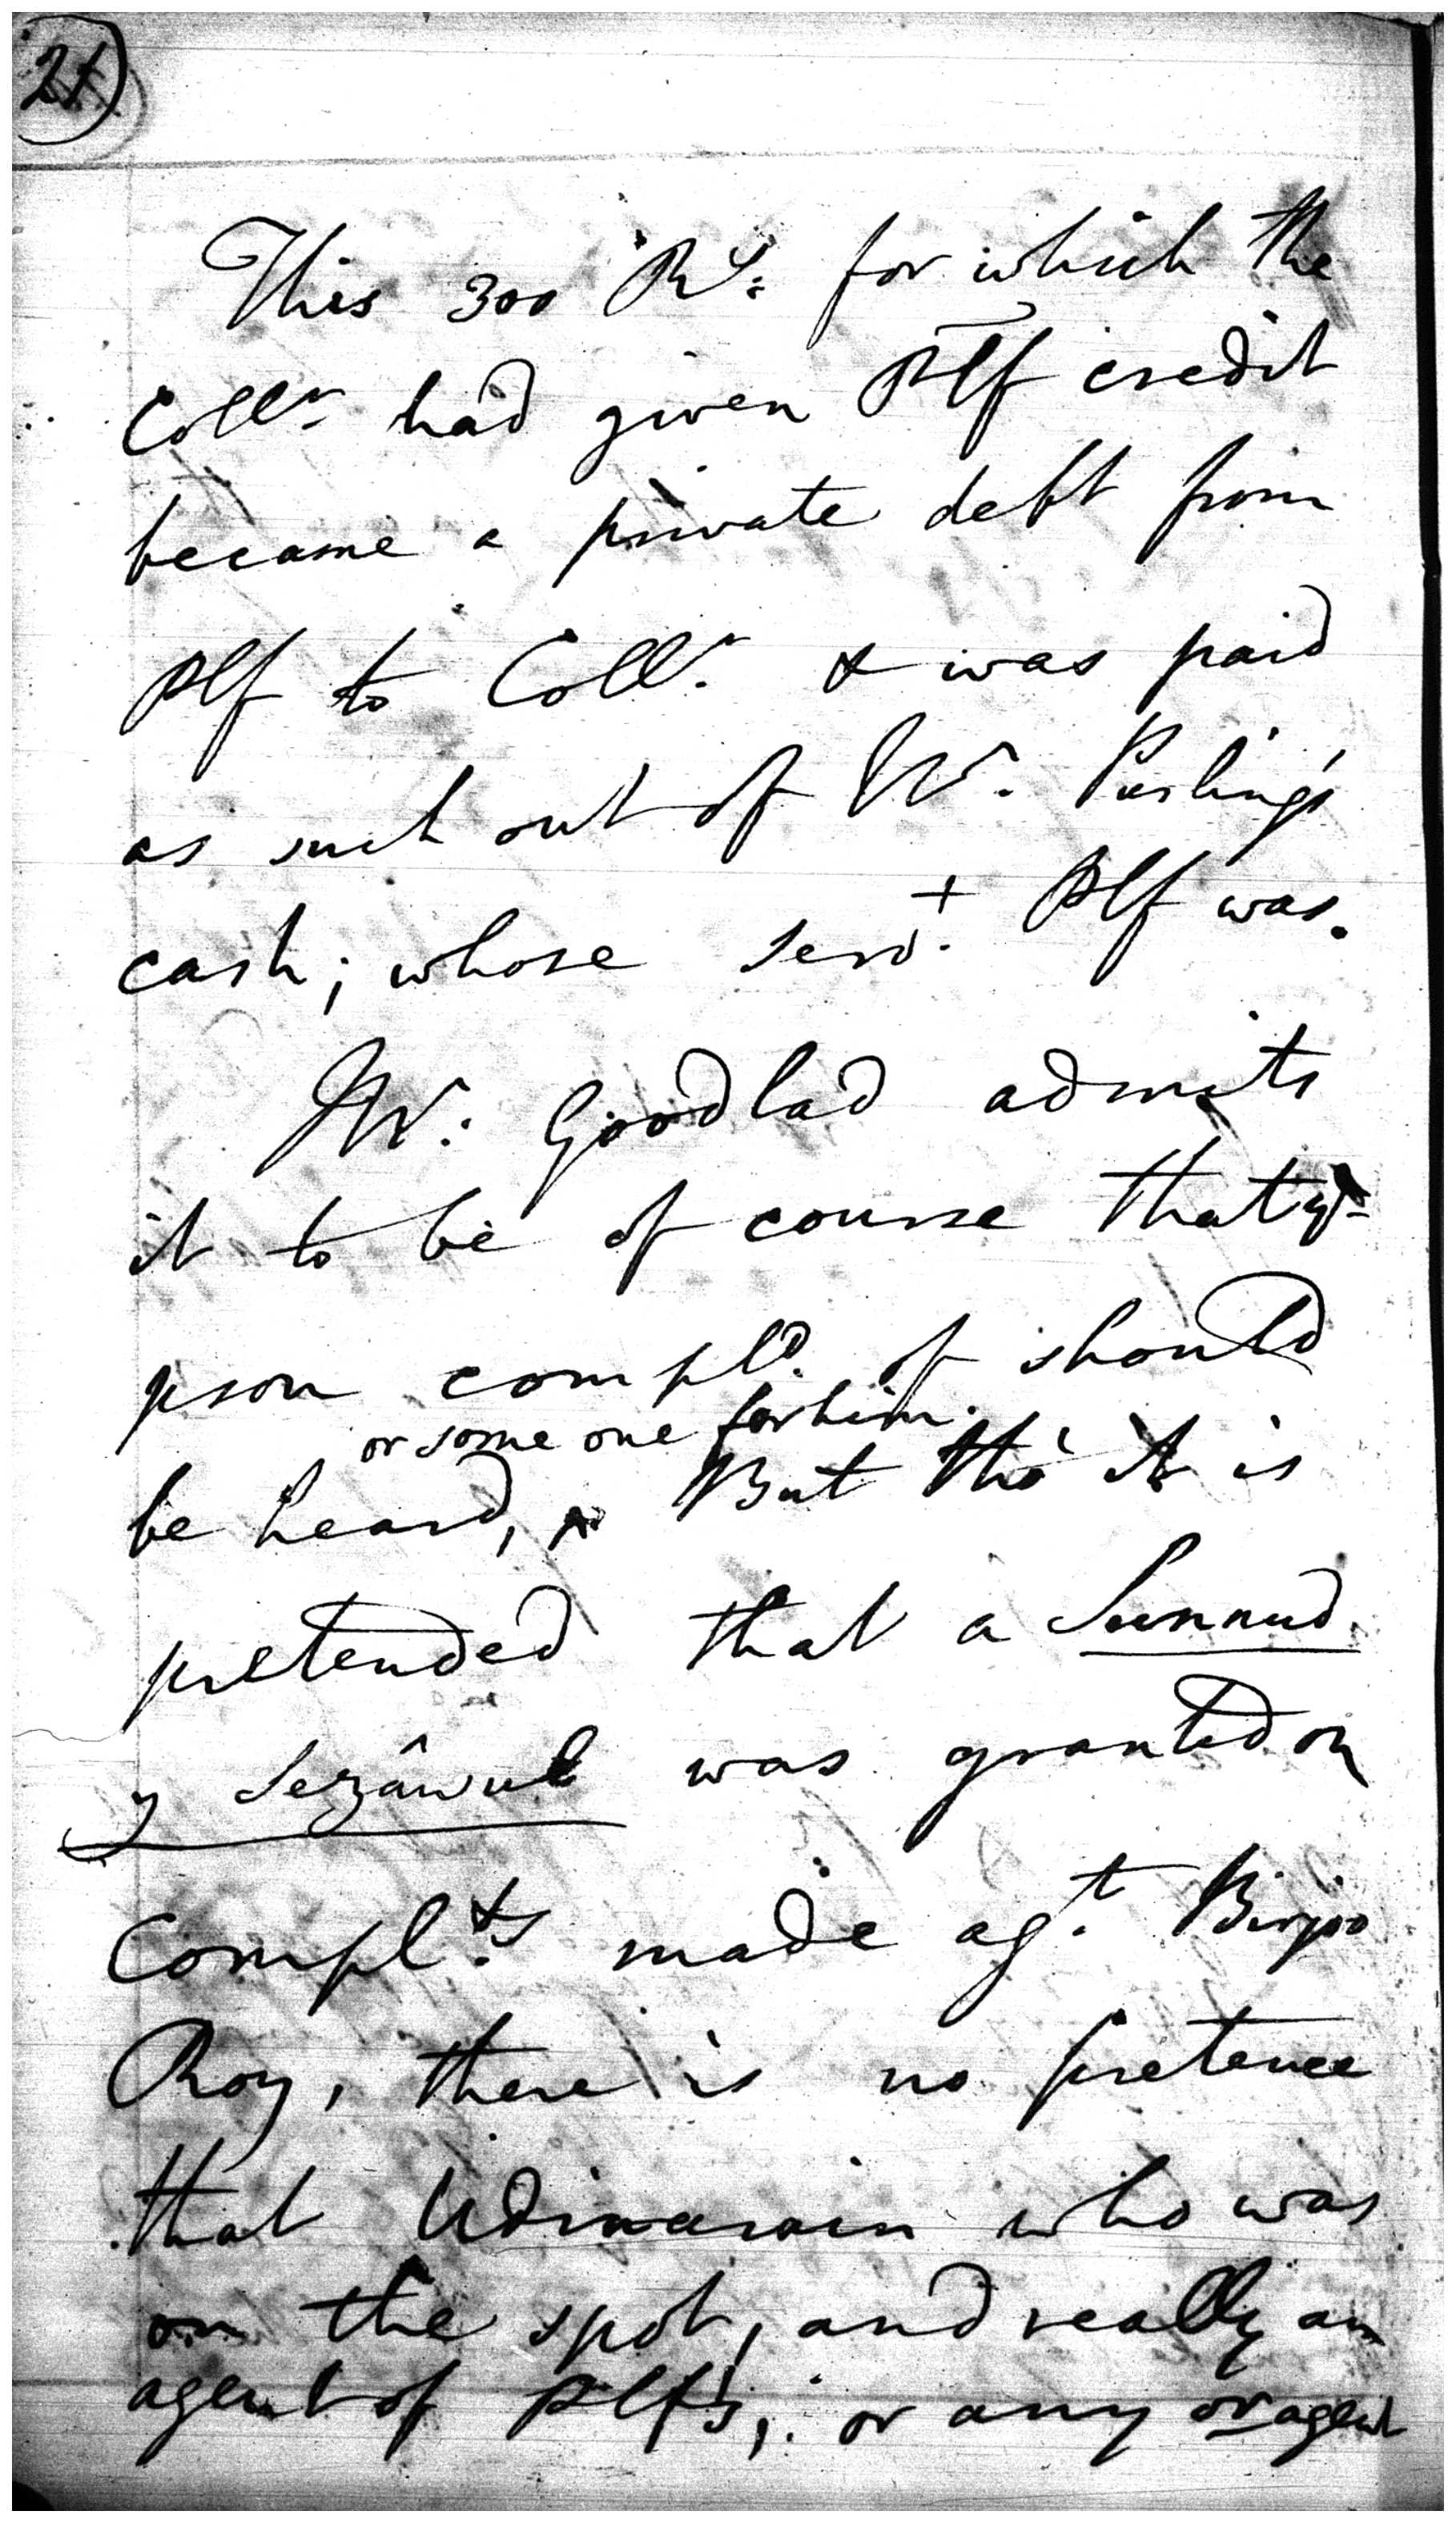 21
This 300 Rs. for which the
Collr had given Plf credit
became a private debt from
Plf to Collr. & was paid
as such out of Mr. Purling's
cash; whose servt. Plf was.
Mr. Goodlad admits
it to be of course that ye
pson compld. of should
or some one for him.
be heard, ^ But tho' it is
pretended that a Sunnud
y Sezâwul was granted on
Complts. made agt. Birjoo
Roy, there is no pretence
that Udinarain who was
on the spot, and really an
agent of Plf's, or any or agent